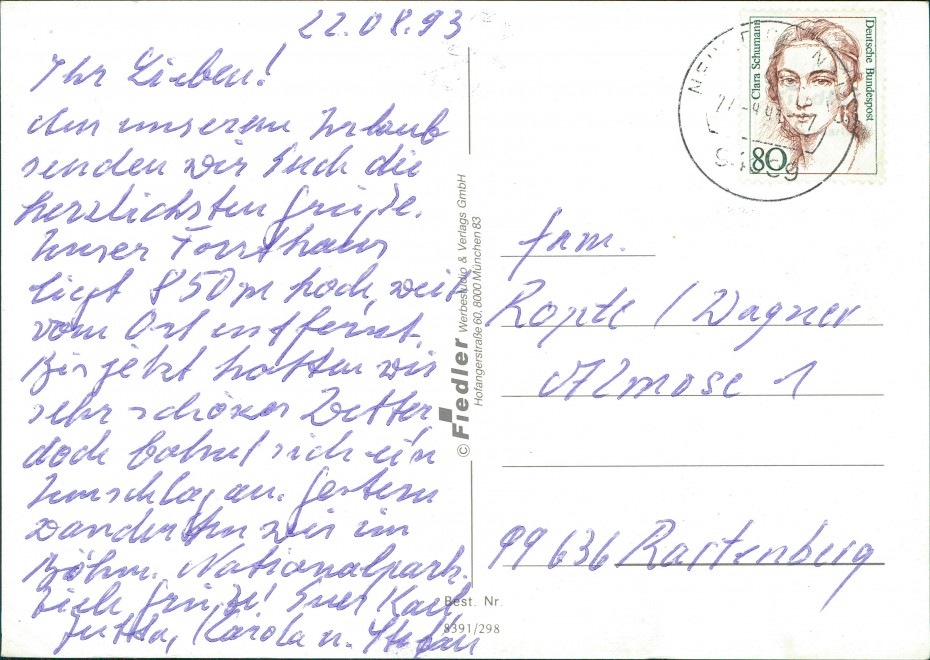 22.08.93
Ihr Lieben!
Aus unserem Urlaub
senden wir Euch die
herzlichsten Grüße.
Unser Forsthaus
liegt 850 m hoch, weit
vom Ort entfernt.
Bis jetzt hatten wir
sehr schönes Wetter
doch bahnt sich ein
Umschlag an. Gestern
wanderten wir im
Böhm. Nationalpark.
Viele Grüße! Euer Karl,
Jutta, Karola u. Stefan
© Fiedler Werbestudio & Verlags GmbH
Hofangerstraße 60, 8000 München 83
Best. Nr.
8391/298
Deutsche Bundespost
Clara Schumann
80
Fam.
Ropte / Wagner
Almose 1
99636 Rastenberg